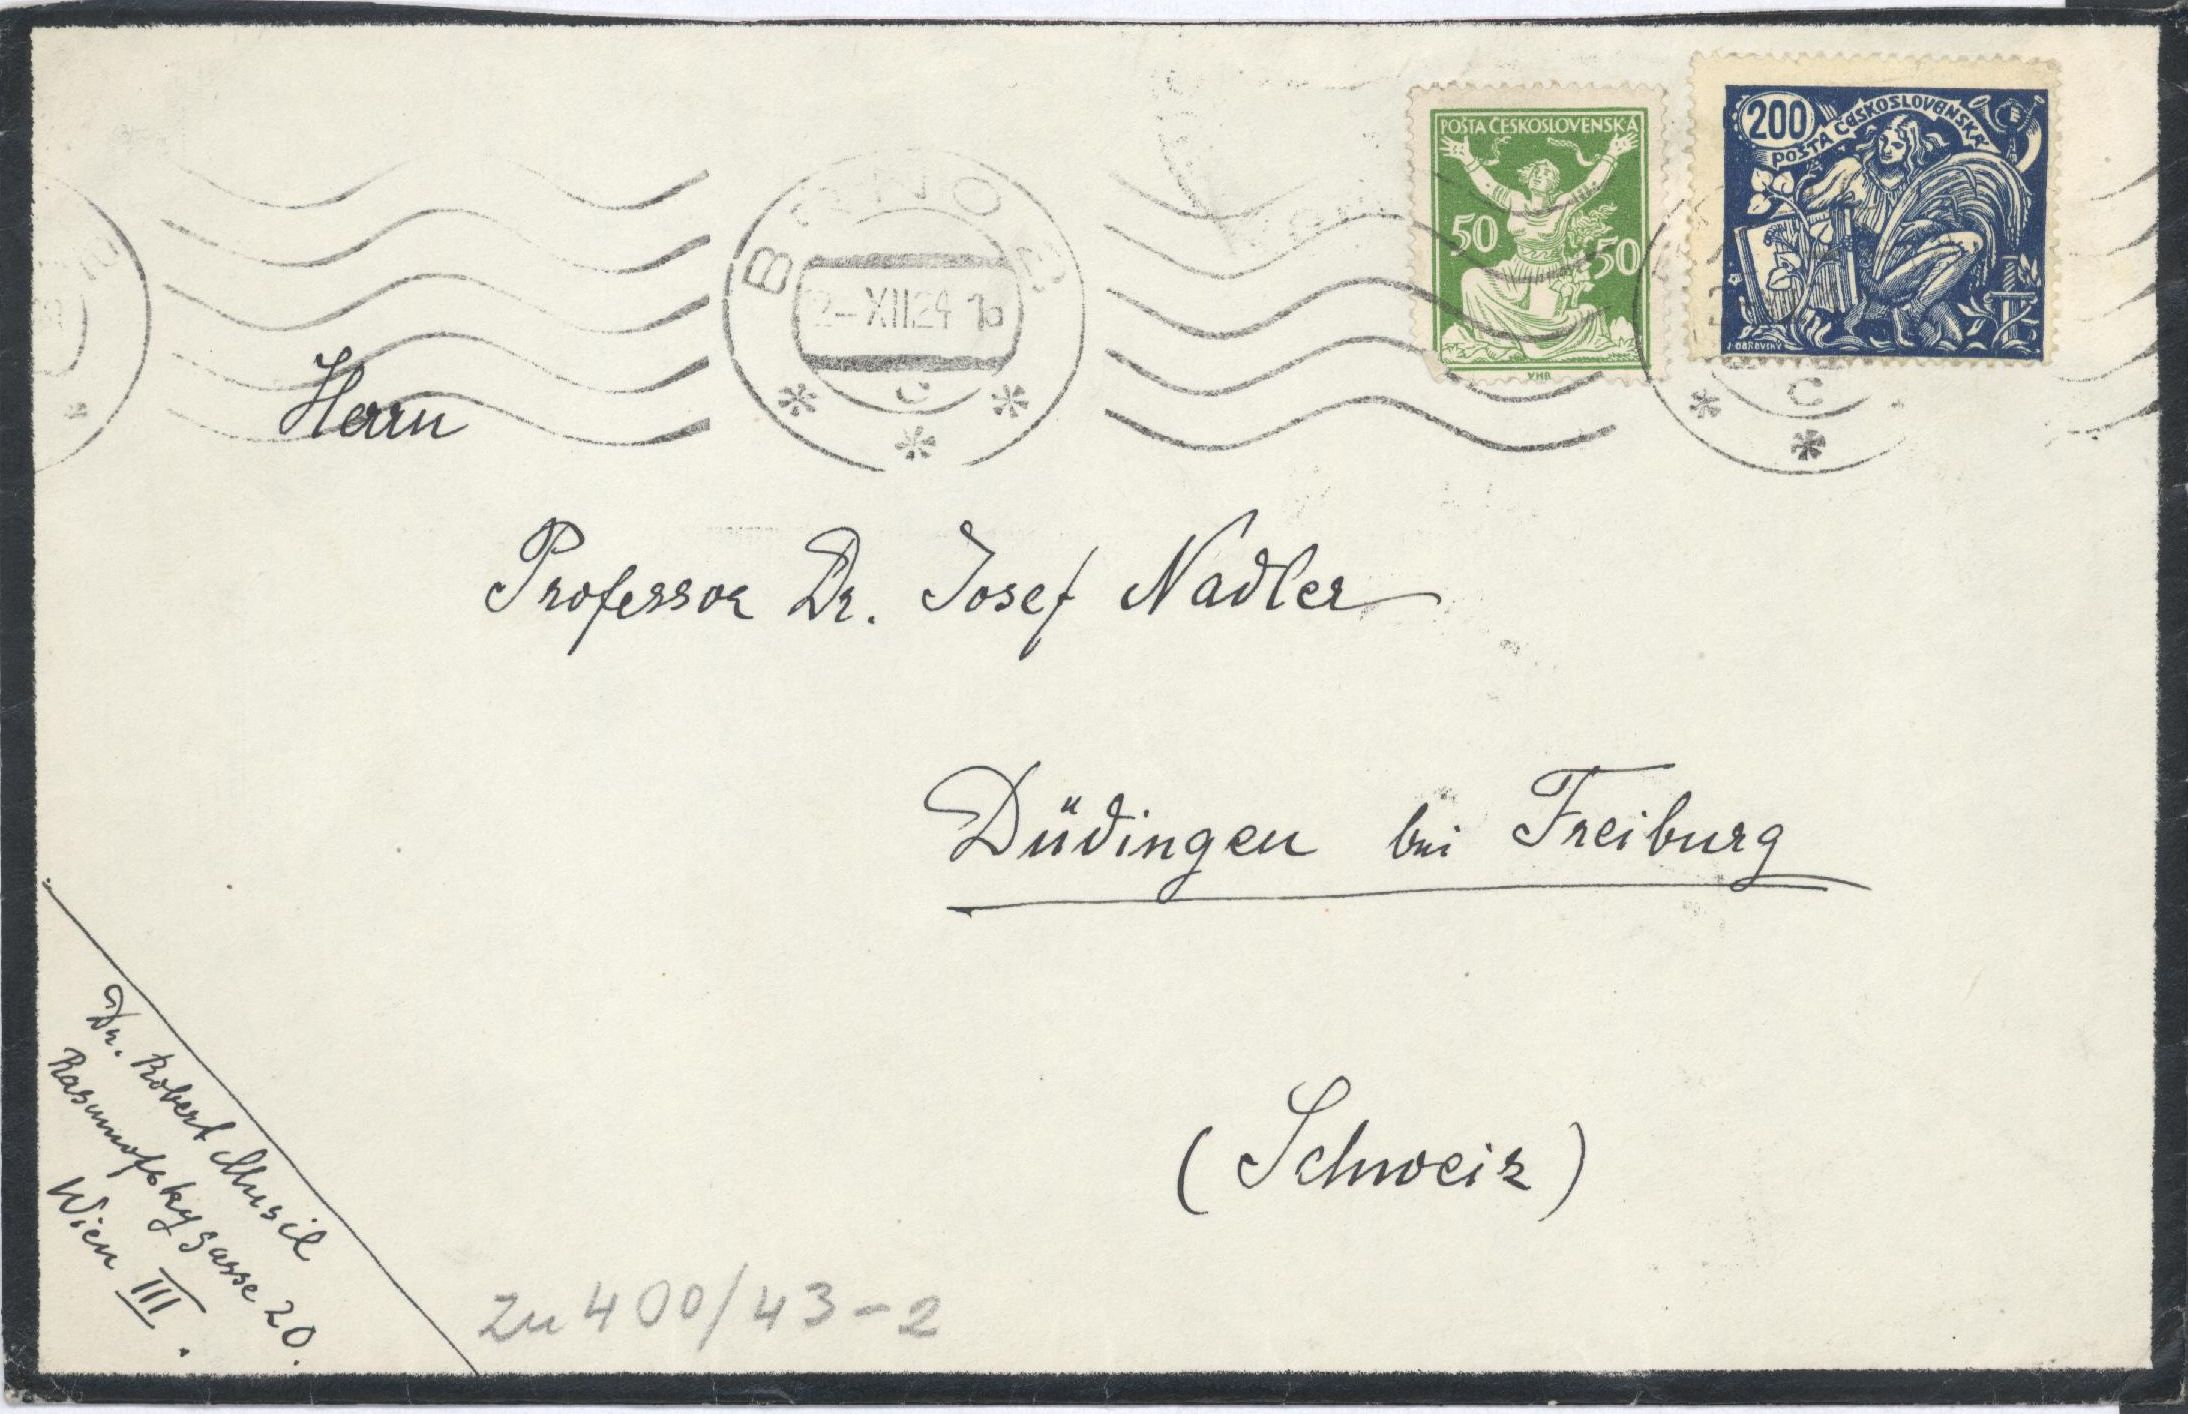 POŠTA ČESKOSLOVENSKÁ
50 50
VHB
200
POŠTA ČESKOSLOVENSKÁ
BRNO
2-XII24
C
C
Herrn
Professor Dr. Josef Nadler
Düdingen bei Freiburg
(Schweiz)
Dr. Robert Musil
Rasumofskygasse 20.
Wien III.
Zu 400/43-2